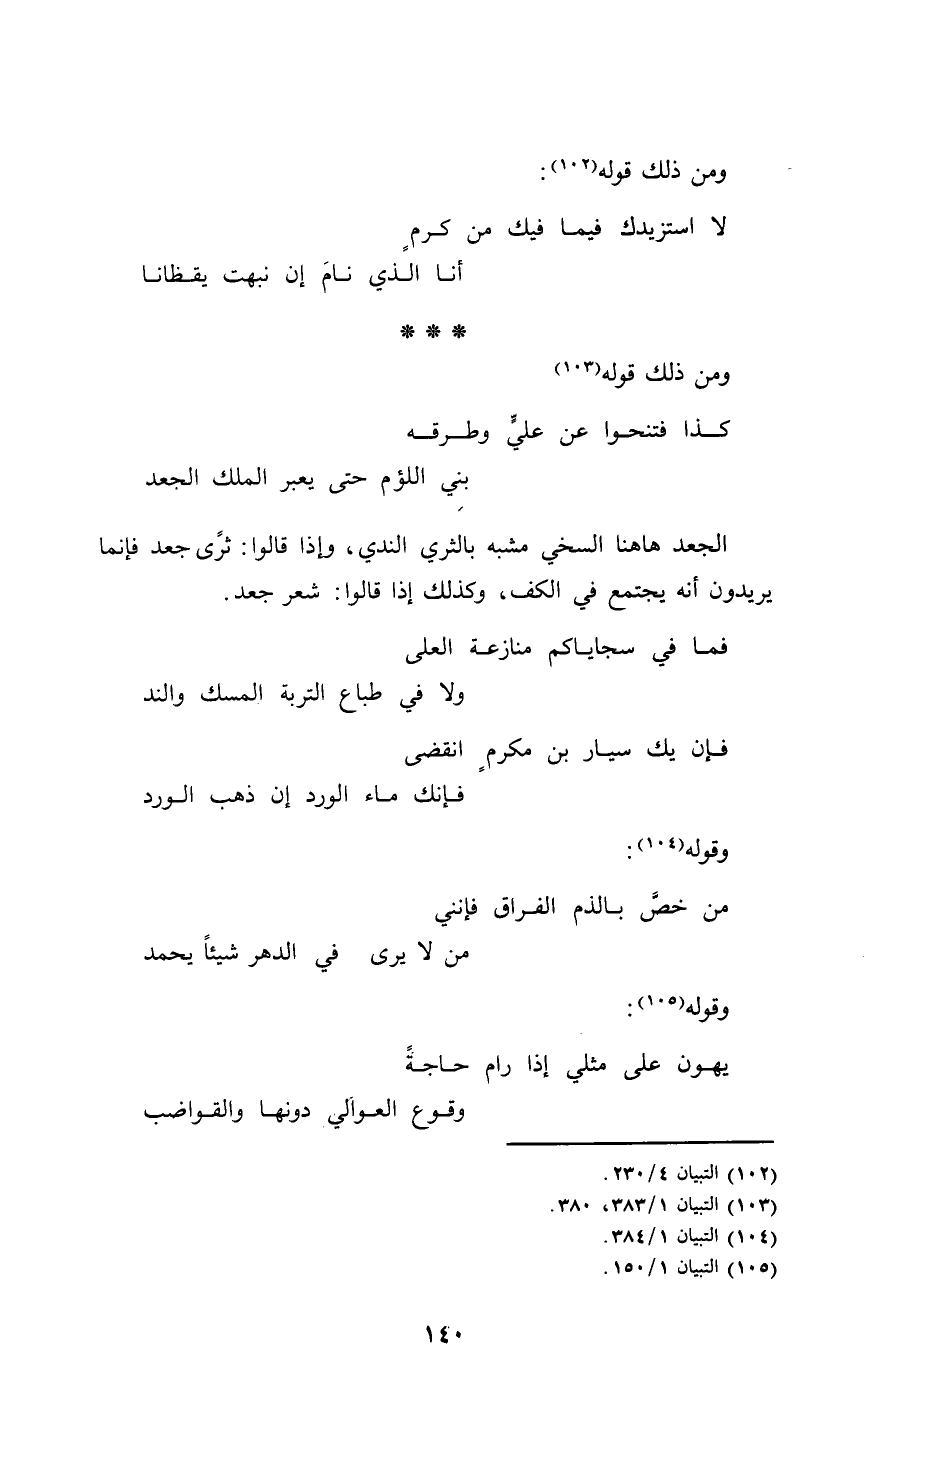 ومن ذلك قوله(١٠٢):
لا استزيدك فيمـا فيك من كـرمٍ
أنـا الـذي نـامَ إن نبهت يقـظانـا
* * *
ومن ذلك قوله(١٠٣)
كـذا فتنحـوا عن عليٍّ وطـرقـه
بني اللؤم حتى يعبر الملك الجعد
الجعد هاهنا السخي مشبه بالثري الندي، وإذا قالوا: ثرًى جعد فإنما
يريدون أنه يجتمع في الكف، وكذلك إذا قالوا: شعر جعد.
فمـا في سجايـاكم منازعـة العلى
ولا في طباع التربة المسك والند
فـإن يك سيـار بن مكرمٍ انقضى
فـإنك مـاء الورد إن ذهب الـورد
وقوله(١٠٤):
من خصَّ بـالذم الفـراق فإنني
من لا يرى في الدهر شيئاً يحمد
وقوله(١٠٥):
يهـون على مثلي إذا رام حـاجـةً
وقـوع العـوالي دونهـا والقـواضب
(١٠٢) التبيان ٤/ ٢٣٠.
(١٠٣) التبيان ١/ ٣٨٣، ٣٨٠.
(١٠٤) التبيان ١/ ٣٨٤.
(١٠٥) التبيان ١/ ١٥٠.
١٤٠